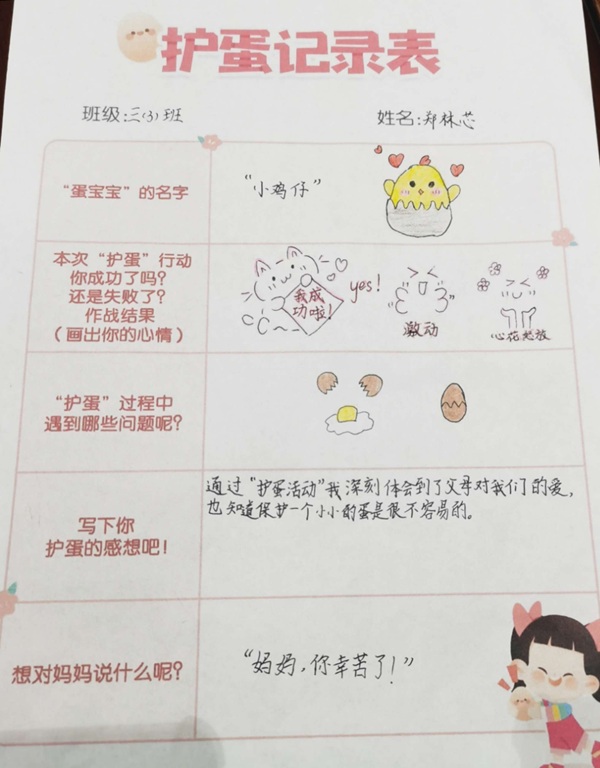 护蛋记录表
班级:三(3)班 姓名:郑林芯
“蛋宝宝”的名字
“小鸡仔”
本次“护蛋”行动
你成功了吗?
还是失败了?
作战结果
(画出你的心情)
我成
功啦!
yes!
激动
心花怒放
“护蛋”过程中
遇到哪些问题呢?
写下你
护蛋的感想吧!
通过“护蛋活动”我深刻体会到了父母对我们的爱,
也知道保护一个小小的蛋是很不容易的。
想对妈妈说什么呢?
“妈妈,你幸苦了!”